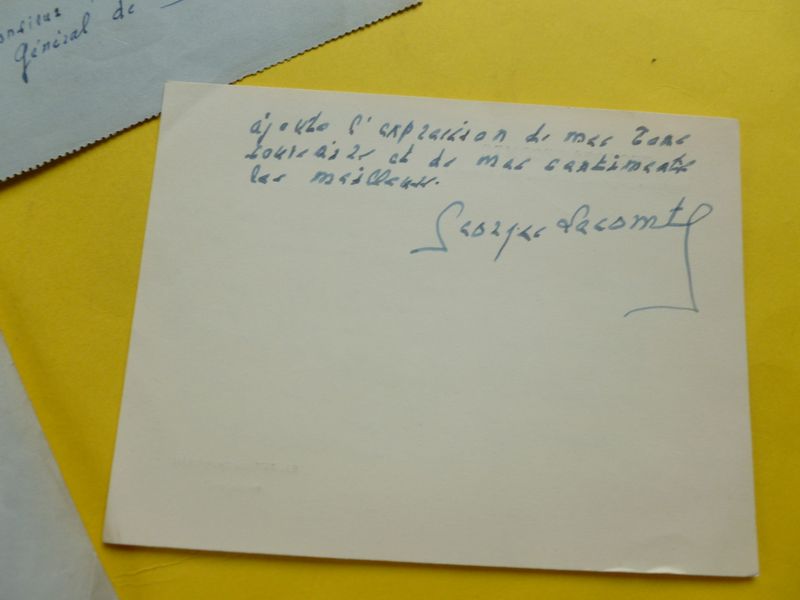 onsieur
Général de
ajoute l'expression de mes bons
souvenirs et de mes sentiments
les meilleurs.
Georges Lecomte